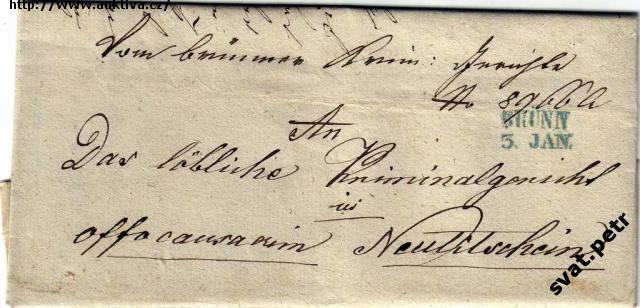 http://www.auktiva.cz/
Vom brünner Krim: Gerichte
No 8966
BRÜNN
3. JAN.
An
Das löbliche Kriminalgericht
in
Neutitschein
svat.petr